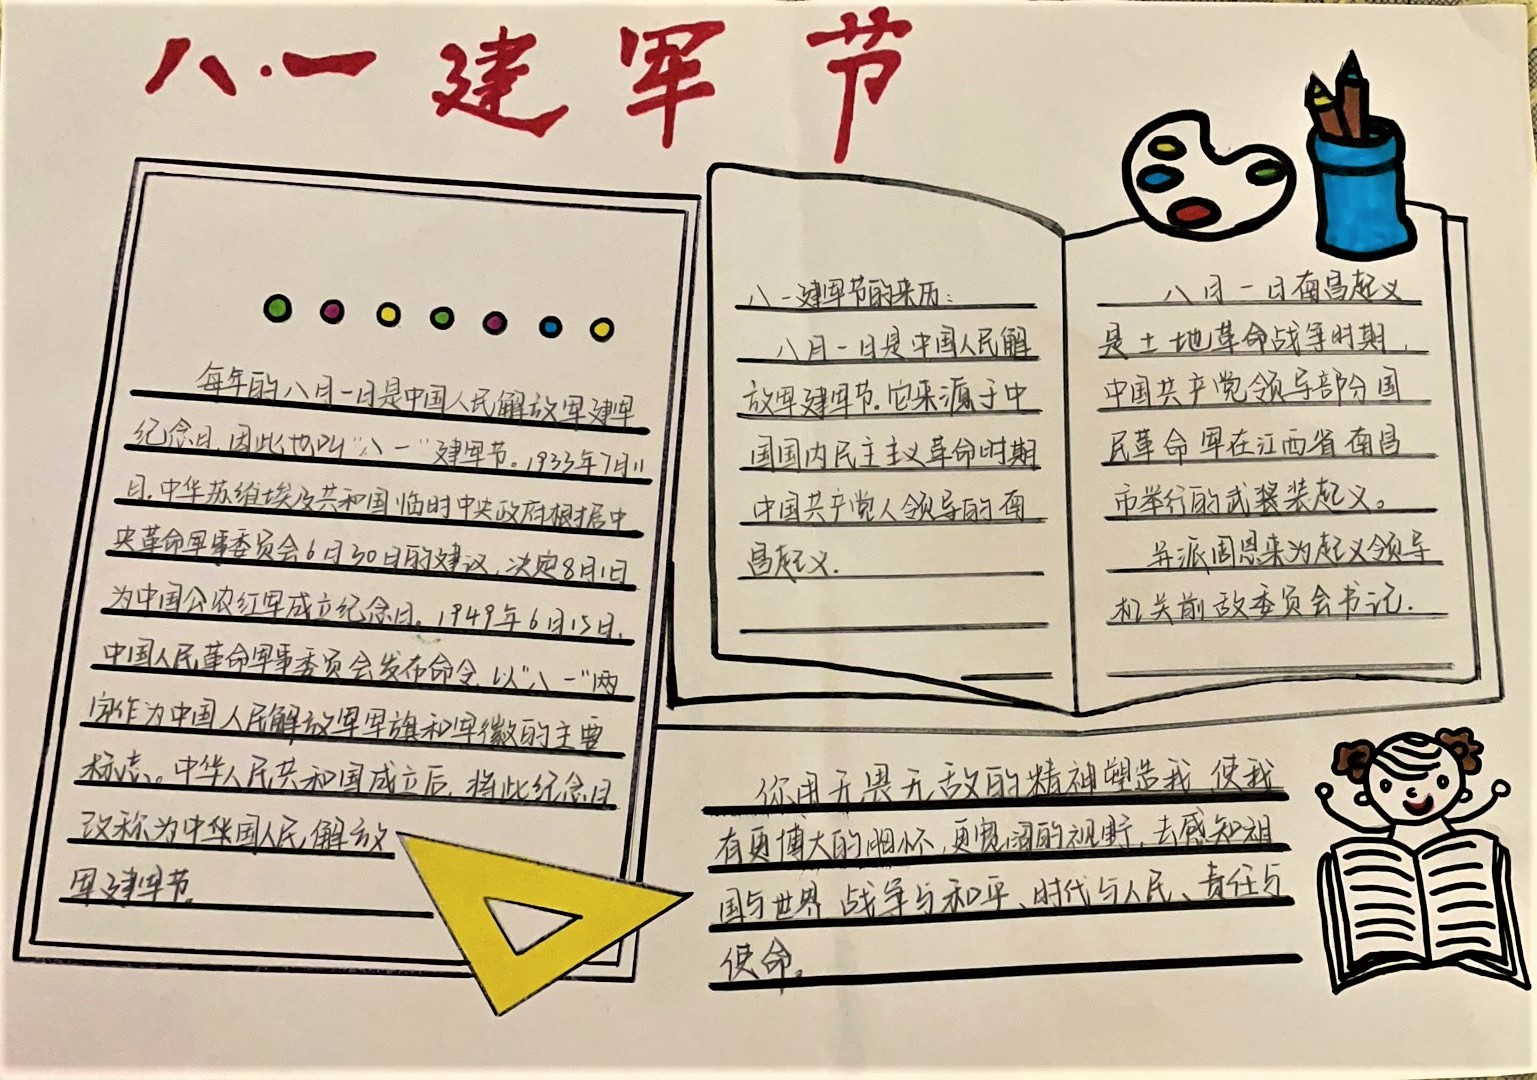 八·一建军节
每年的八月一日是中国人民解放军建军
纪念日,因此也叫"八一"建军节。1933年7月11
日,中华苏维埃及共和国临时中央政府根据中
央革命军事委员会6月30日的建议,决定8月1日
为中国公农红军成立纪念日。1949年6月15日,
中国人民革命军事委员会发布命令,以"八一"两
字作为中国人民解放军军旗和军徽的主要
标志。中华人民共和国成立后,将此纪念日
改称为中华国人民解放
军建军节。
八一建军节的来历:
八月一日是中国人民解
放军建军节.它来源于中
国国内民主主义革命时期
中国共产党人领导的南
昌起义.
八月一日南昌起义
是土地革命战争时期,
中国共产党领导部分国
民革命军在江西省南昌
市举行的武装起义。
并派周恩来为起义领导
机关前敌委员会书记.
你用无畏无敌的精神塑造我,使我
有更博大的胸怀,更宽阔的视野,去感知祖
国与世界 战争与和平、时代与人民、责任与
使命。